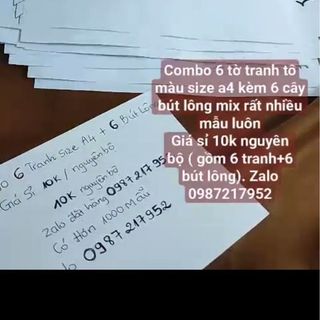 Combo 6 tờ tranh tô
màu size a4 kèm 6 cây
bút lông mix rất nhiều
mẫu luôn
Giá sỉ 10k nguyên
bộ ( gồm 6 tranh+6
bút lông). Zalo
0987217952
6 Tranh Size A4 + 6 Bút Lông
Giá Sỉ 10K / nguyên bộ
10K nguyên bộ
Zalo đặt hàng 0987217952
Có Hơn 1000 Mẫu
0987217952